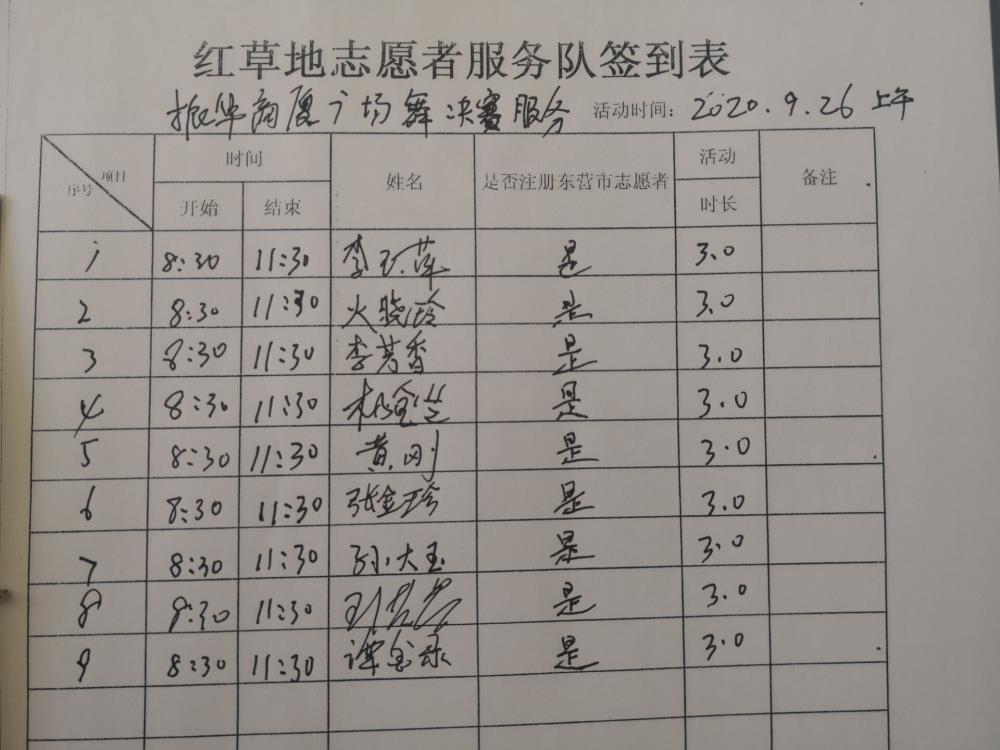 红草地志愿者服务队签到表
振华商厦广场舞决赛服务 活动时间：2020.9.26 上午
项目 序号 时间 姓名 是否注册东营市志愿者 活动 备注
开始 结束 时长
1 8:30 11:30 李玉萍 是 3.0
2 8:30 11:30 火晓玲 是 3.0
3 8:30 11:30 李芳香 是 3.0
4 8:30 11:30 是 3.0
5 8:30 11:30 黄刚 是 3.0
6 8:30 11:30 张金玲 是 3.0
7 8:30 11:30 孙大玉 是 3.0
8 8:30 11:30 是 3.0
9 8:30 11:30 谭金录 是 3.0